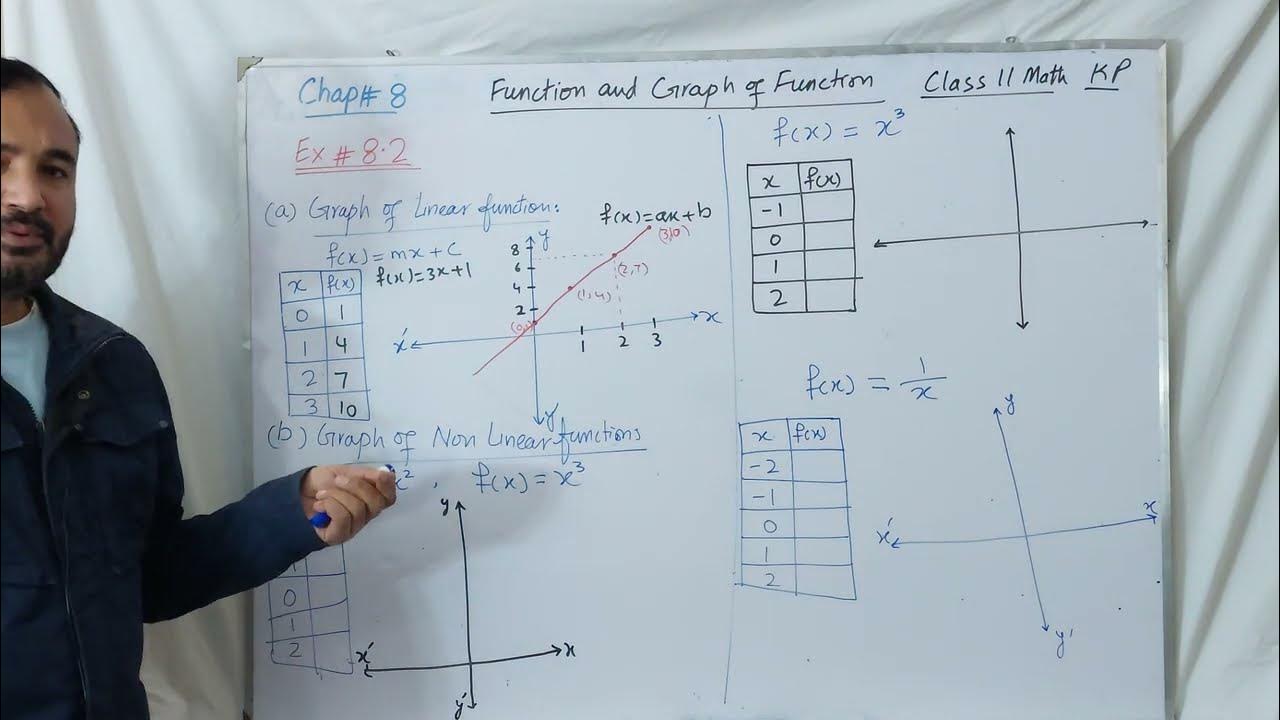 Chap# 8
Function and Graph of Function
Class 11 Math KP
Ex # 8.2
(a) Graph of Linear function:
f(x)=mx+c
f(x)=3x+1
x f(x)
0 1
1 4
2 7
3 10
f(x)=ax+b
y
8
6
4
2
(2,7)
(1,4)
x' x
1 2 3
y'
(b) Graph of Non Linear functions
x², f(x)=x³
0
1
2
y
x' x
y'
f(x) = x³
x f(x)
-1
0
1
2
f(x) = 1/x
x f(x)
-2
-1
0
1
2
y
x' x
y'